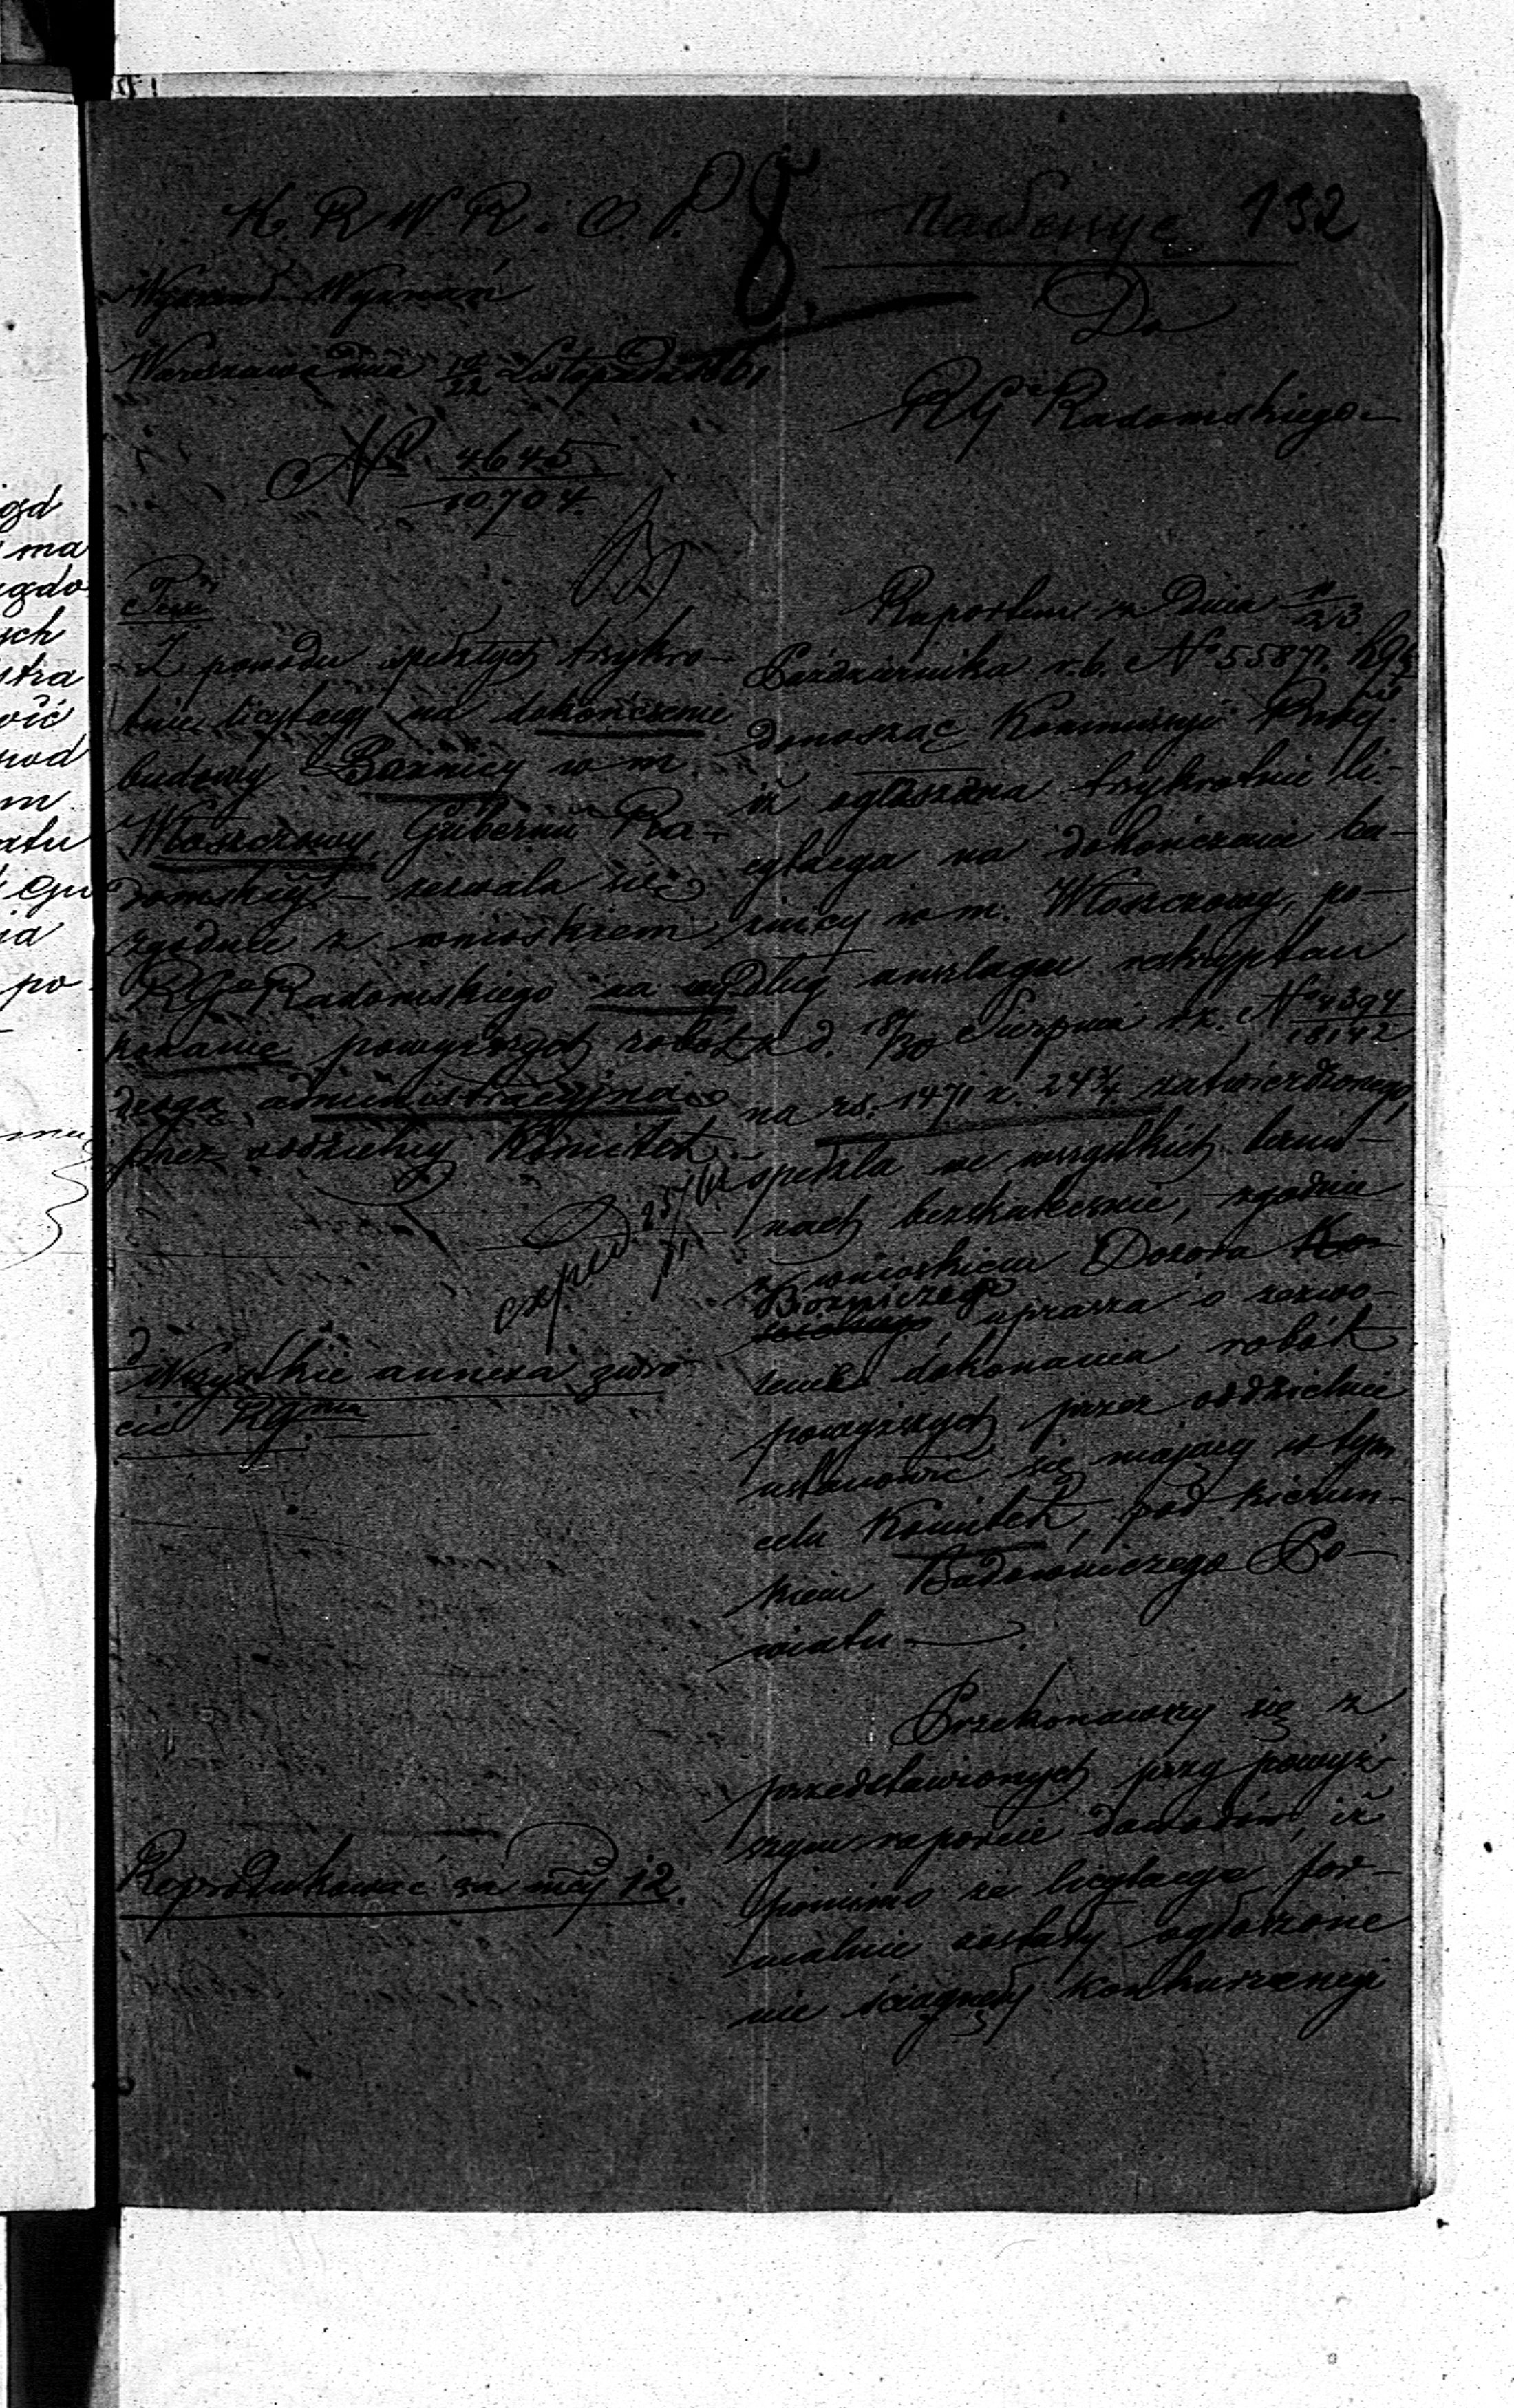 132
K. R. W. R. i O. P.
Wydział Wyznań
Warszawa dnia 10/22 Listopada 1861
No 4645/10704
Treść
Z powodu spełzłych trzykro-
tnie licytacyj na dokończenie
budowy Bożnicy w m.
Włoszczowy Gubernii Ra-
domskiej – zezwala się
zgodnie z wnioskiem
RGo Radomskiego na wy-
konanie powyższych robót
drogą administracyjną
przez oddzielny Komitet.
exped. 25/11 61
Wszystkie annexa zwró-
cić RGmu
Reprodukować za mcy 12.
Do
RGo Radomskiego
Raportem z dnia 11/23
Października r. b. No 55871
donosząc Kommissyi Rząd.
iż ogłaszana trzykrotnie li-
cytacya na dokończenie bo-
żnicy w m. Włoszczowy, po-
dług anszlagu reskryptem
z d. 18/30 Sierpnia r. z. No 4394/18142
na rs. 1471 k. 24 3/4 zatwierdzonego,
spełzła we wszystkich termi-
nach bezskutecznie, zgodnie
z wnioskiem Dozoru Ko-
Bożniczego
ścielnego uprasza o zezwo-
lenie dokonania robót
powyższych przez oddzielnie
ustanowić się mający w tym
celu Komitet, pod kierun-
kiem Budowniczego Po-
wiatu.
Przekonawszy się z
przedstawionych przy powyż-
szym raporcie dowodów, iż
pomimo że licytacye for-
malnie zostały ogłoszone
nie ściągnęły konkurencyi